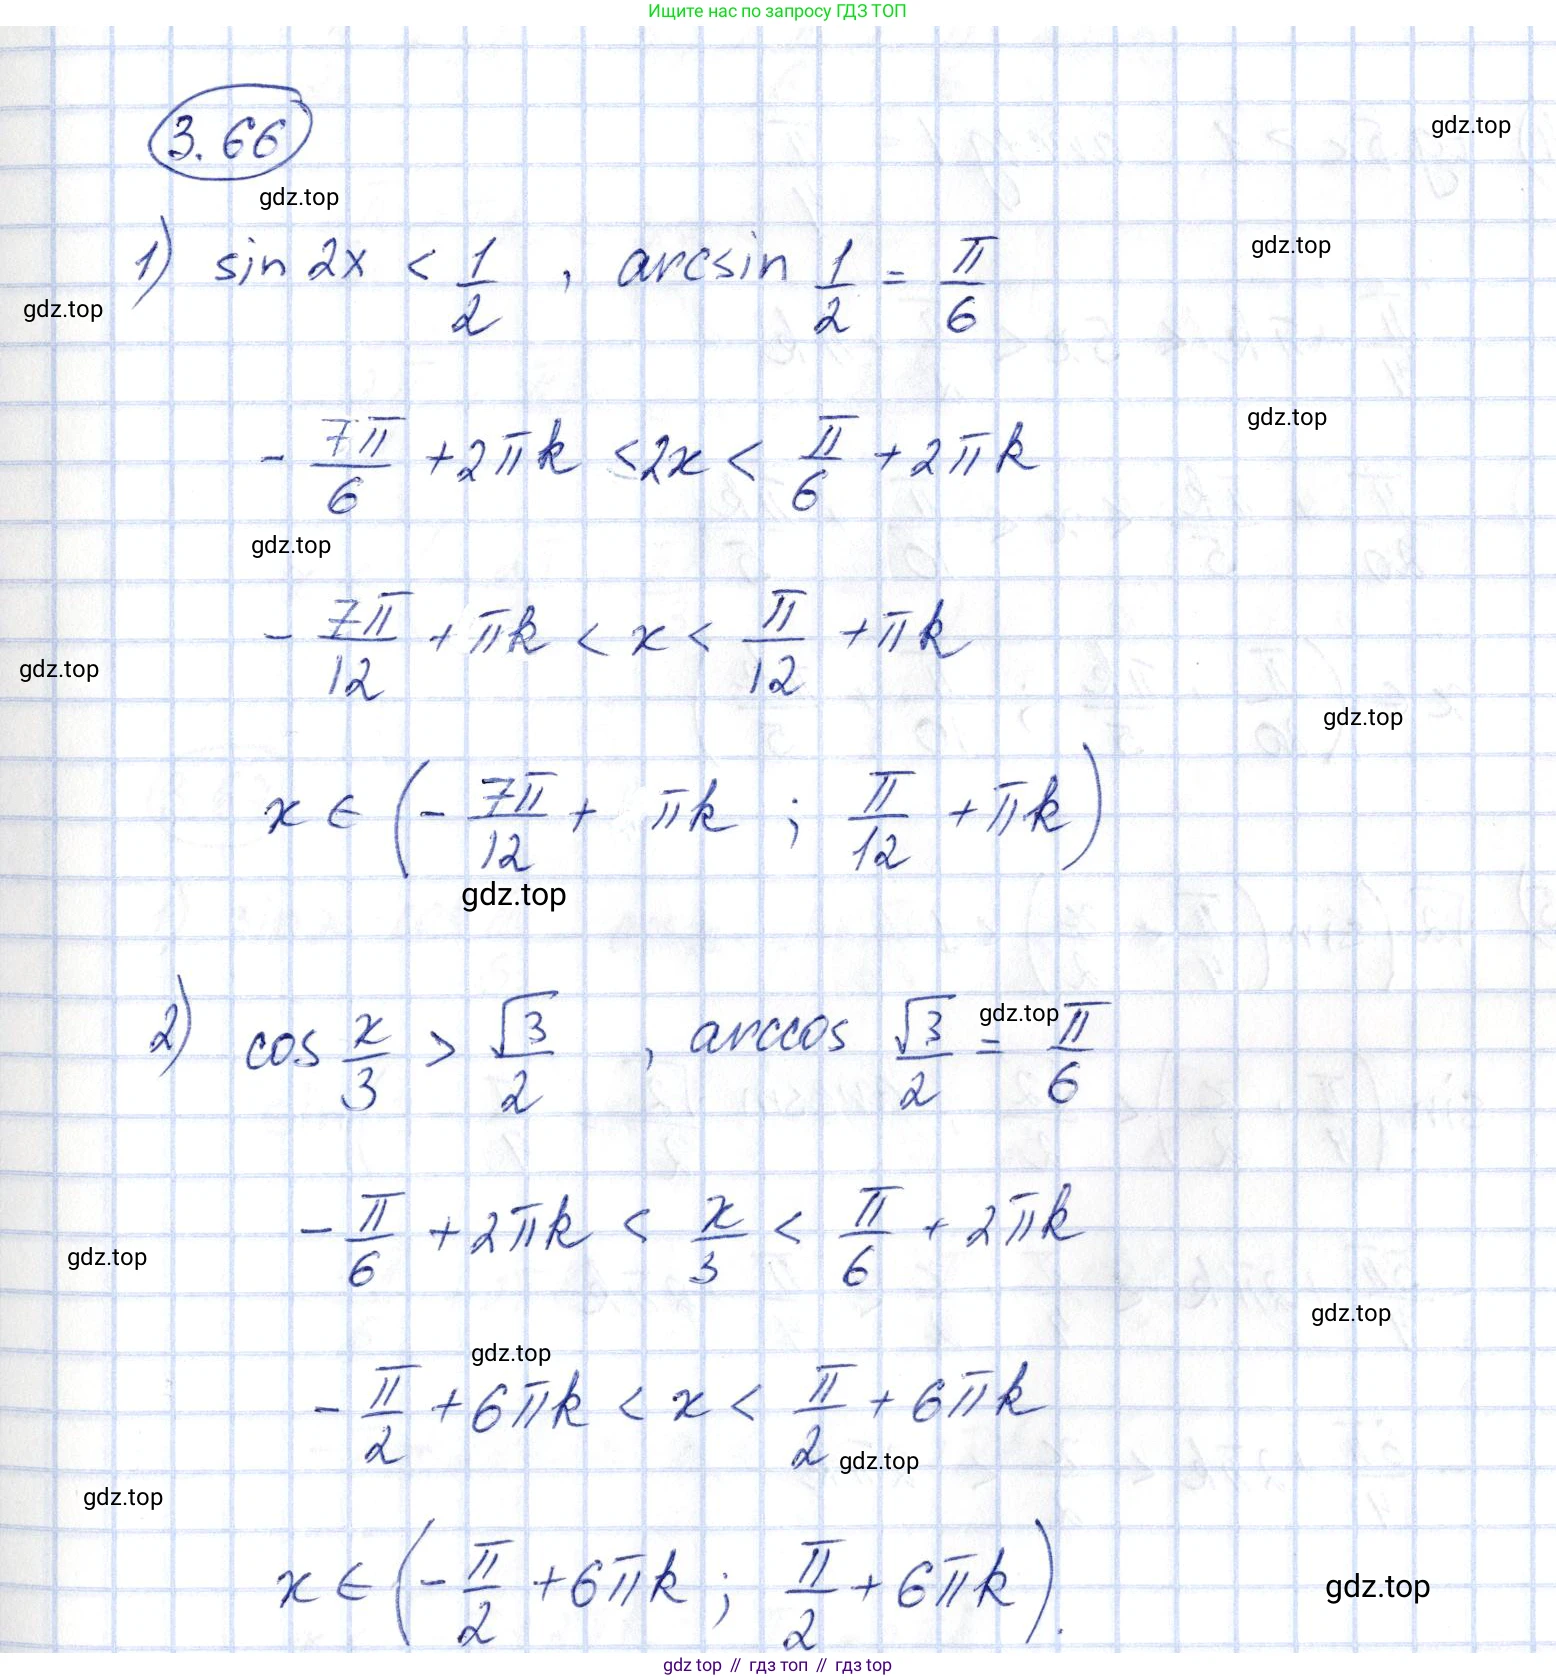 Ищите нас по запросу ГДЗ ТОП
3.66
gdz.top
gdz.top
1) sin 2x < 1/2 , arcsin 1/2 = π/6
gdz.top
gdz.top
- 7π/6 + 2πk < 2x < π/6 + 2πk
gdz.top
gdz.top
- 7π/12 + πk < x < π/12 + πk
gdz.top
gdz.top
x ∈ (- 7π/12 + πk ; π/12 + πk)
gdz.top
2) cos x/3 > √3/2 , arccos √3/2 = π/6
gdz.top
- π/6 + 2πk < x/3 < π/6 + 2πk
gdz.top
gdz.top
gdz.top
- π/2 + 6πk < x < π/2 + 6πk
gdz.top
gdz.top
x ∈ (- π/2 + 6πk ; π/2 + 6πk).
gdz.top
gdz top // гдз топ // гдз top